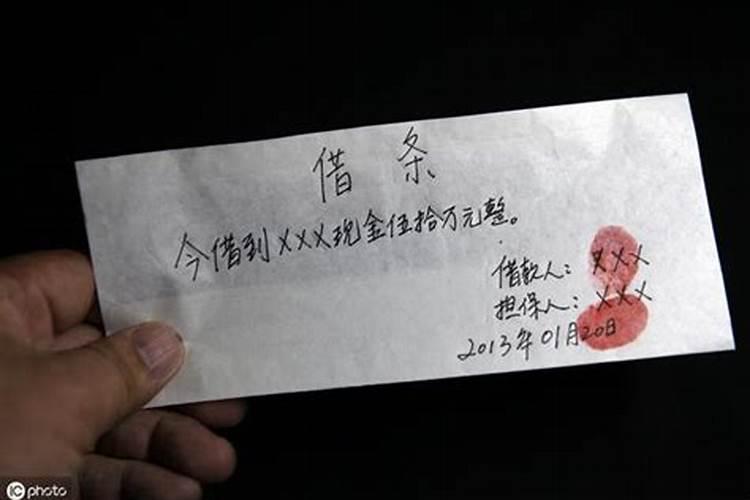 借条
今借到XXX现金伍拾万元整。
借款人：XXX
担保人：XXX
2013年01月20日
iC photo